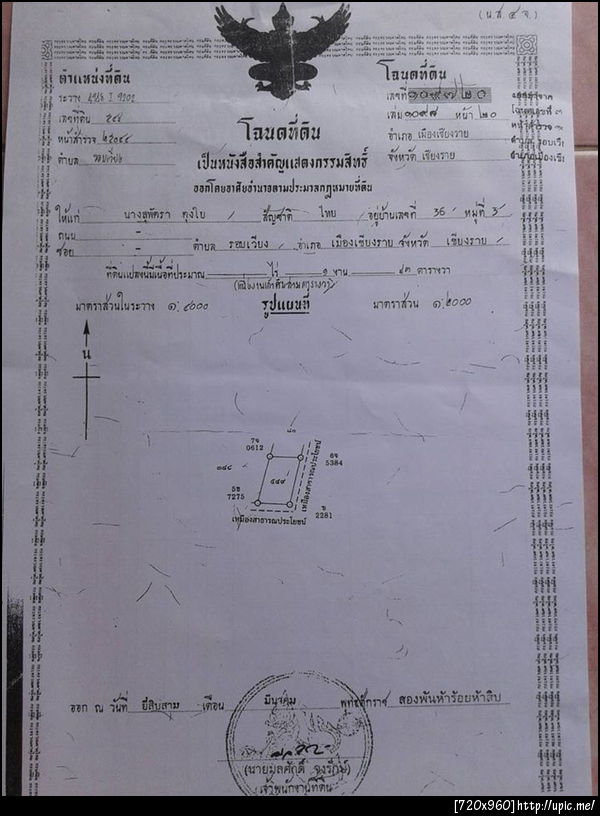 (น.ส. ๔ จ.)
ตำแหน่งที่ดิน
ระวาง
เลขที่ดิน
หน้าสำรวจ ๒๒๐๕๕
ตำบล รอบเวียง
โฉนดที่ดิน
เลขที่ ๑๐๙๗๒๐
เล่ม ๑๐๙๘ หน้า ๒๐
อำเภอ เมืองเชียงราย
จังหวัด เชียงราย
โฉนดที่ดิน
เป็นหนังสือสำคัญแสดงกรรมสิทธิ์
ออกโดยอาศัยอำนาจตามประมวลกฎหมายที่ดิน
ให้แก่ นางสุพัตรา ตุงใบ สัญชาติ ไทย อยู่บ้านเลขที่ 36 หมู่ที่ 3
ถนน -
ซอย - ตำบล รอบเวียง อำเภอ เมืองเชียงราย จังหวัด เชียงราย
ที่ดินแปลงนี้มีเนื้อที่ประมาณ - ไร่ ๑ งาน ๔๓ ตารางวา
มาตราส่วนในระวาง ๑:๔๐๐๐ รูปแผนที่ มาตราส่วน ๑:๒๐๐๐
น
7จ
0612
๘๑
6จ
5384
๕๔๙
5ข
7275
ข
2281
เหมืองสาธารณประโยชน์
เหมืองสาธารณประโยชน์
ออก ณ วันที่ ยี่สิบสาม เดือน มีนาคม พุทธศักราช สองพันห้าร้อยห้าสิบ
(นายมูลศักดิ์ จงรักษ์)
เจ้าพนักงานที่ดิน
[720x960]http://upic.me/